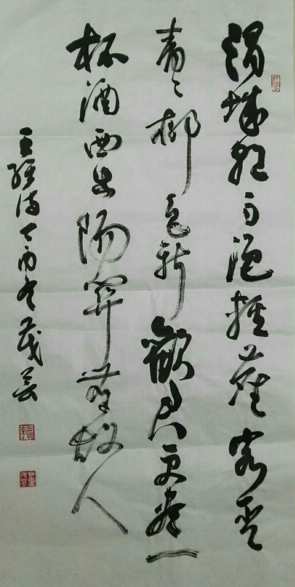 渭城朝雨浥轻尘客舍
青青柳色新劝君更尽一
杯酒西出阳关无故人
王维诗丁酉冬